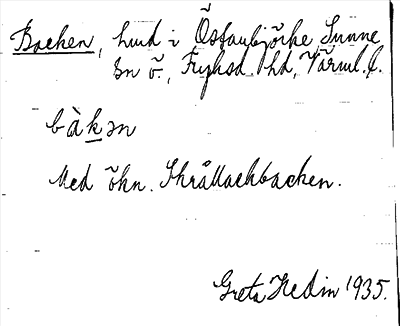 Backen, hmd i Östanbjörke Sunne
sn ö., Fryksd. hd, Värml. l.
bàkən
Med ökn. Skrållachbacken.
Greta Hedin 1935.